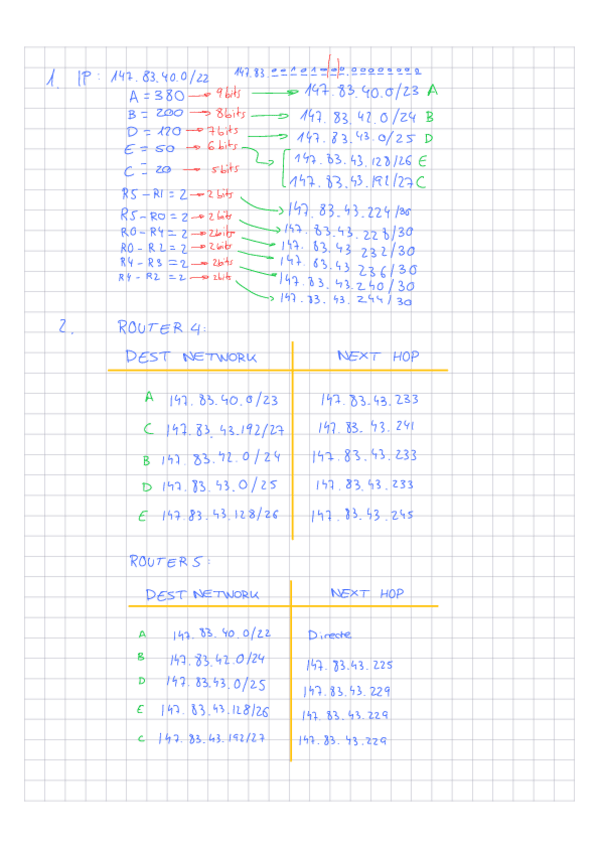 1. IP: 147.83.40.0/22 147.83.00101000.00000000
A = 380 → 9 bits → 147.83.40.0/23 A
B = 200 → 8 bits → 147.83.42.0/24 B
D = 120 → 7 bits → 147.83.43.0/25 D
E = 50 → 6 bits → 147.83.43.128/26 E
C = 20 → 5 bits 147.83.43.192/27 C
R5-R1 = 2 → 2 bits → 147.83.43.224/30
R5-R0 = 2 → 2 bits → 147.83.43.228/30
R0-R4 = 2 → 2 bits → 147.83.43 232/30
R0-R2 = 2 → 2 bits → 147.83.43 236/30
R4-R3 = 2 → 2 bits → 147.83.43.240/30
R4-R2 = 2 → 2 bit → 147.83.43.244/30
2. ROUTER 4:
DEST NETWORK NEXT HOP
A 147.83.40.0/23 147.83.43.233
C 147.83.43.192/27 147.83.43.241
B 147.83.42.0/24 147.83.43.233
D 147.83.43.0/25 147.83.43.233
E 147.83.43.128/26 147.83.43.245
ROUTER 5:
DEST NETWORK NEXT HOP
A 147.83.40.0/22 Directe
B 147.83.42.0/24 147.83.43.225
D 147.83.43.0/25 147.83.43.229
E 147.83.43.128/26 147.83.43.229
C 147.83.43.192/27 147.83.43.229